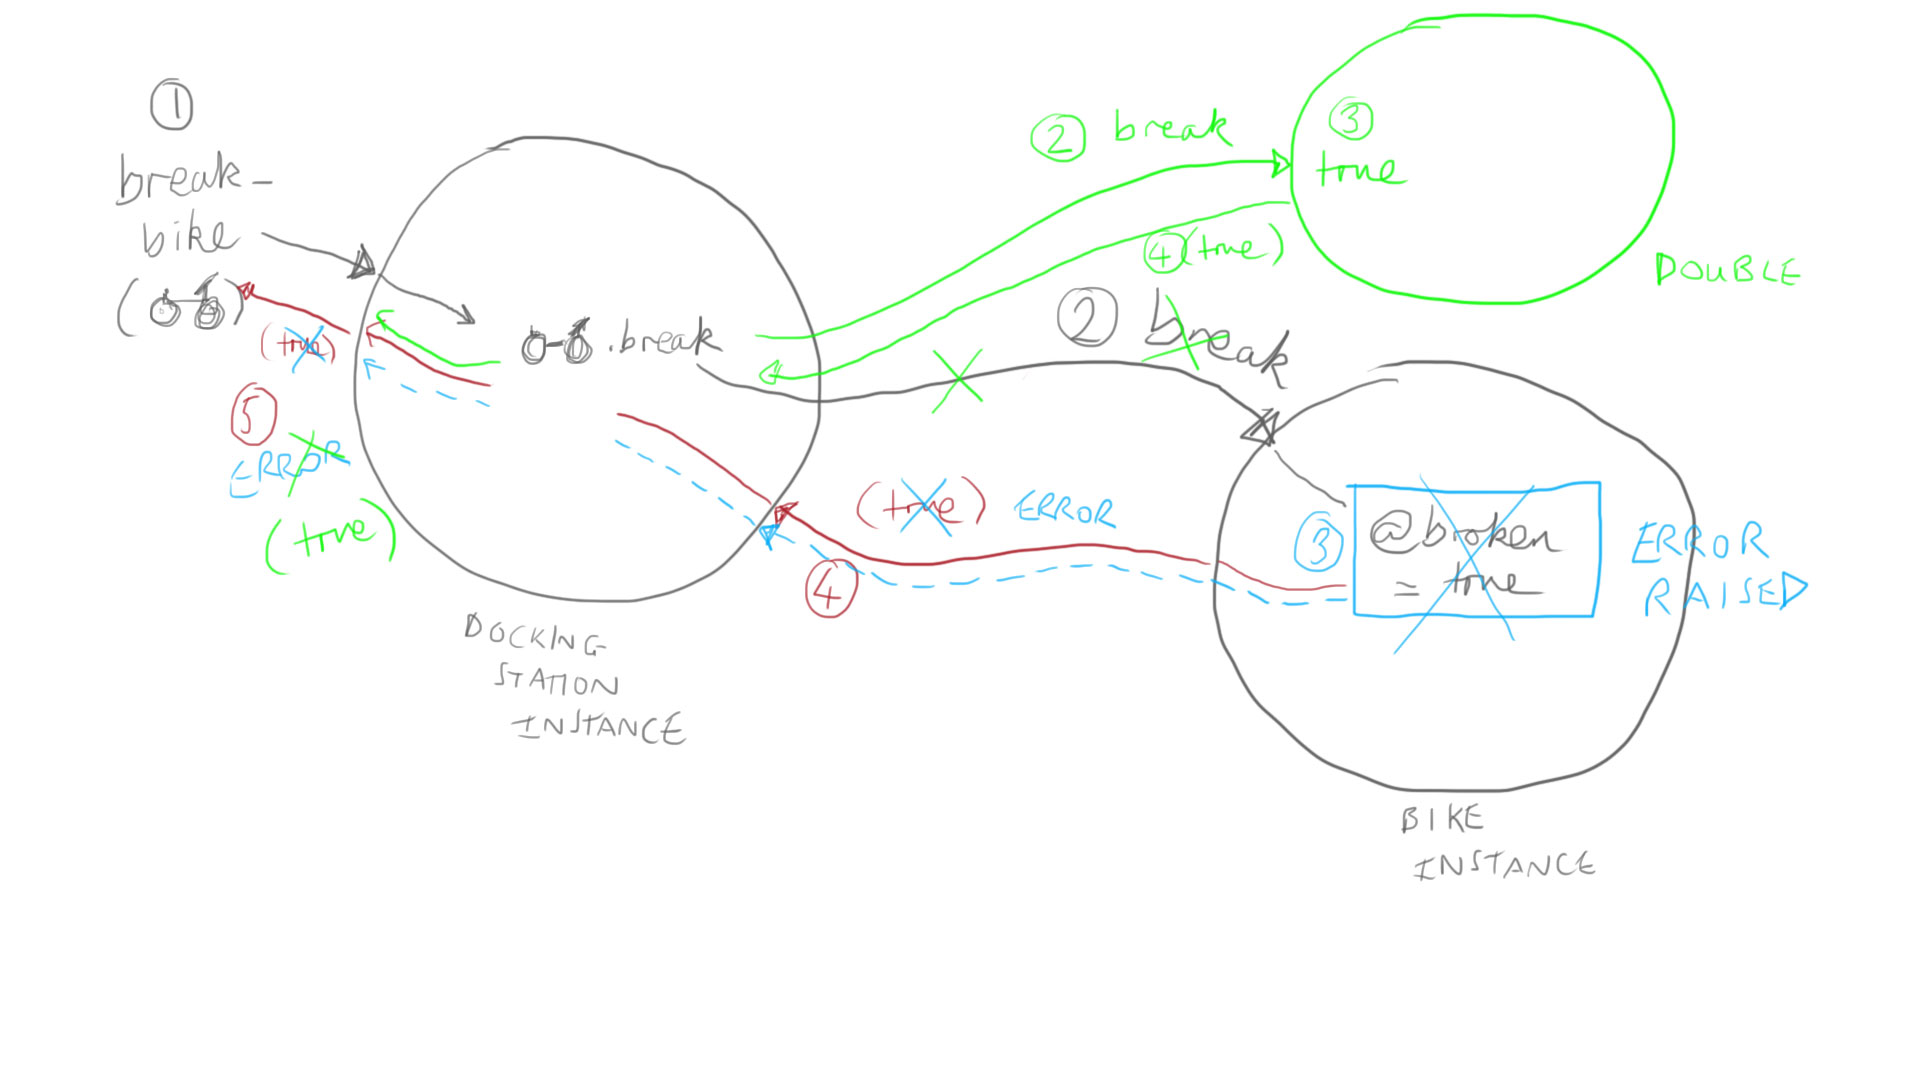 1
break_
bike
( )
(true)
5
ERROR
(true)
.break
DOCKING
STATION
INSTANCE
2 break
3
true
4 (true)
DOUBLE
2 break
(true) ERROR
4
3
@broken
= true
ERROR
RAISED
BIKE
INSTANCE